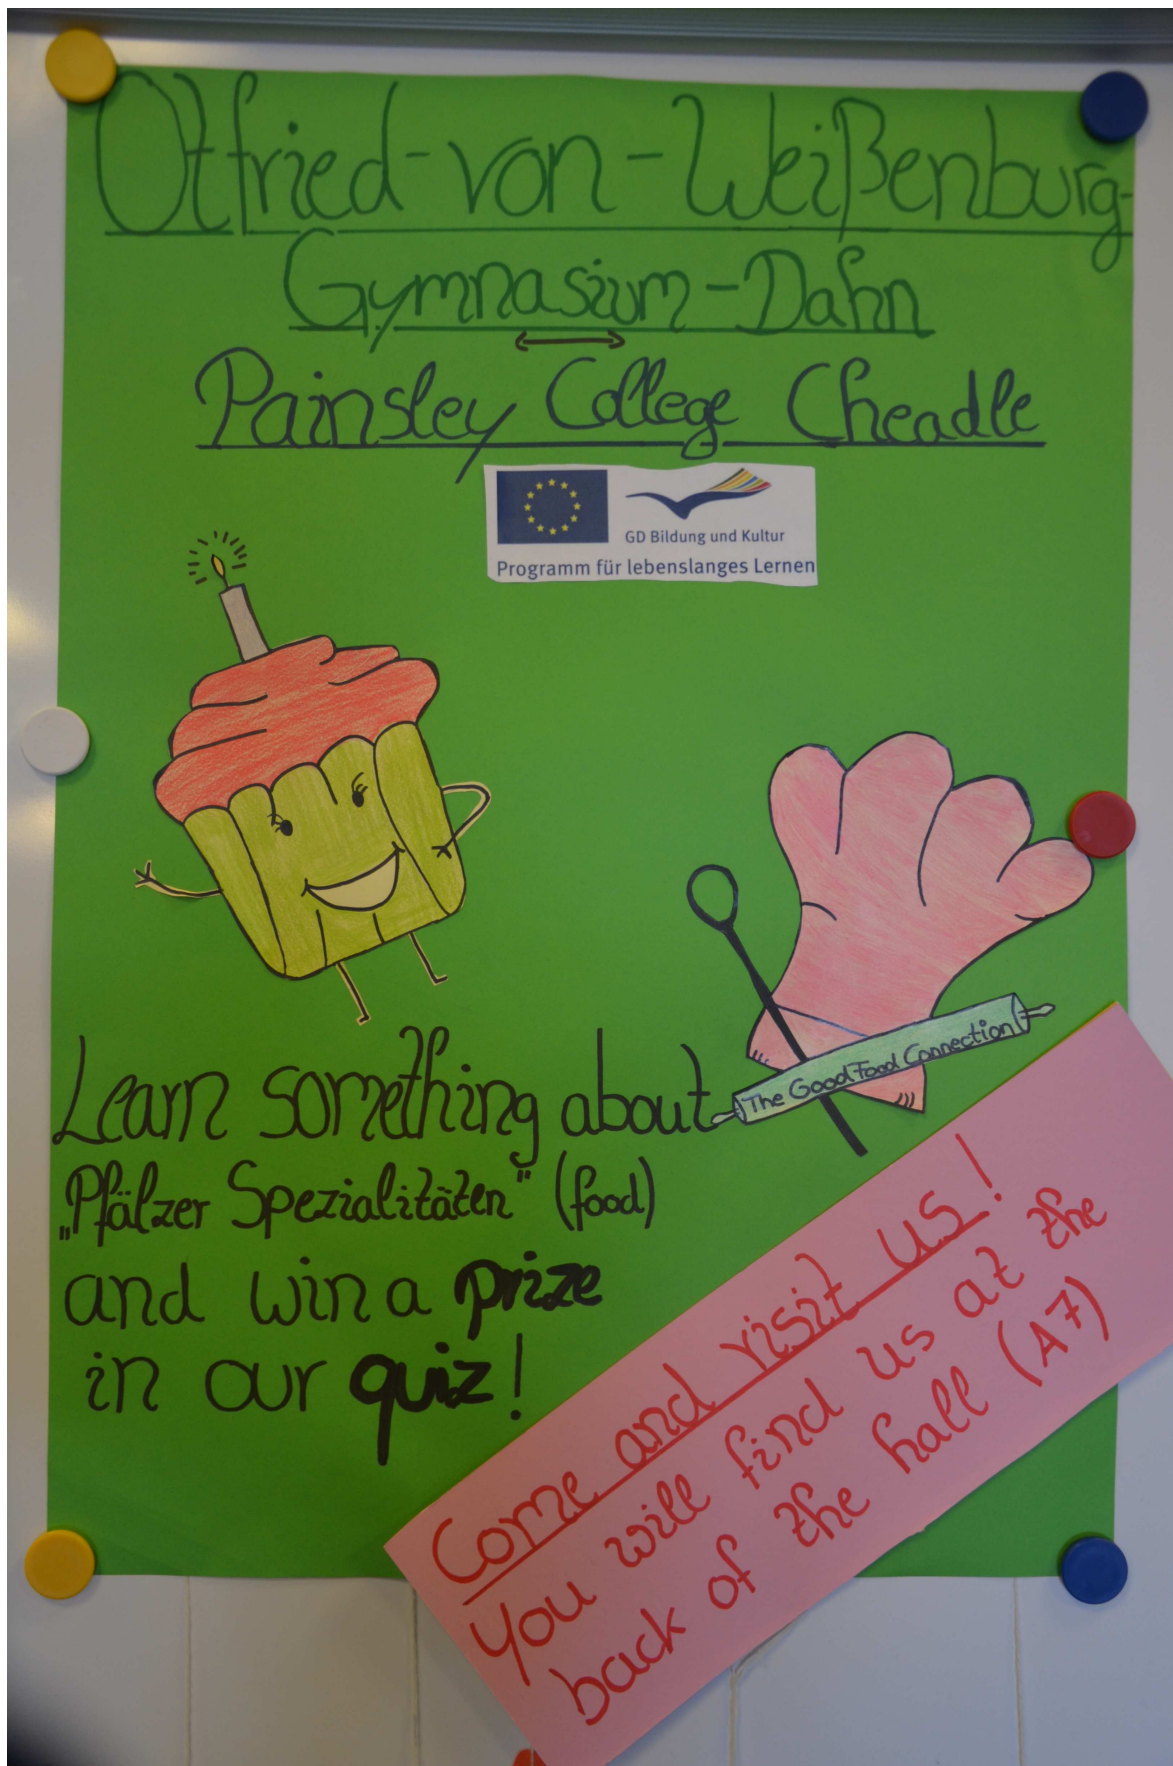 Otfried-von-Weißenburg-
Gymnasium-Dahn
Painsley College Cheadle
GD Bildung und Kultur
Programm für lebenslanges Lernen
The Good Food Connection
Learn something about
„Pfälzer Spezialitäten“ (food)
and win a prize
in our quiz!
Come and visit us!
You will find us at the
back of the hall (A7)